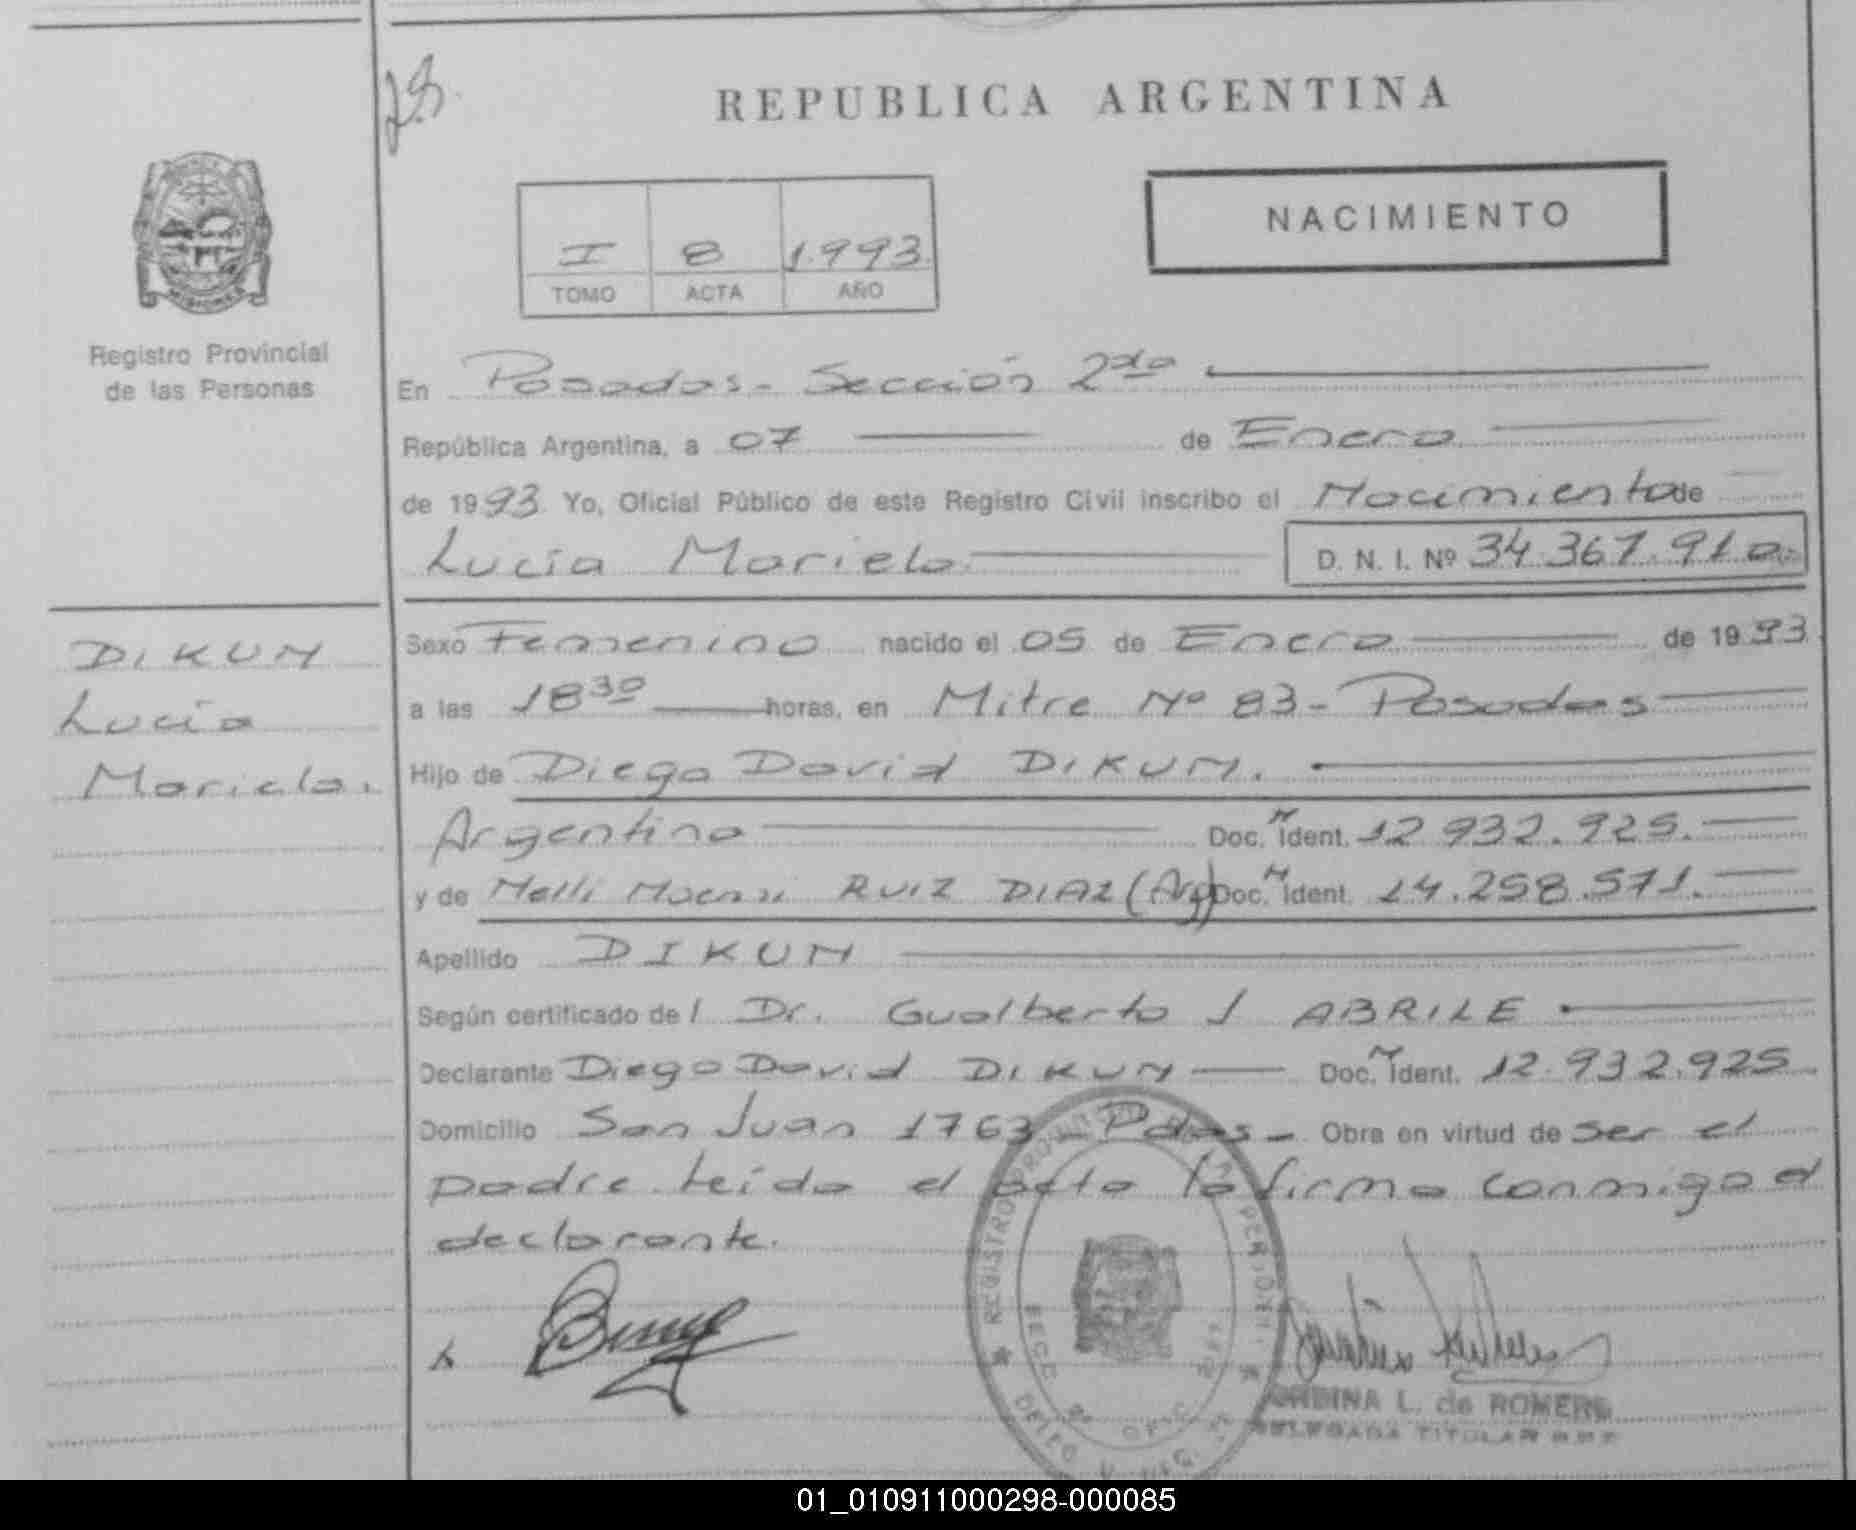 REPUBLICA ARGENTINA
NACIMIENTO
I 8 1.993
TOMO ACTA AÑO
MISIONES
Registro Provincial
de las Personas
En Posadas - Sección 2da
República Argentina, a 07 de Enero
de 1993. Yo, Oficial Público de este Registro Civil inscribo el Nacimiento de
Lucía Mariela.
D. N. I. Nº 34.367.910.
DIKUN
Lucía
Mariela.
Sexo Femenino nacido el 05 de Enero de 1993.
a las 18 30 horas, en Mitre Nº 83 - Posadas
Hijo de Diego David DIKUN.
Argentino Doc. N Ident. 12.932.925.
y de Nelli RUIZ DIAZ (Arg) Doc. N Ident. 14.258.571.
Apellido DIKUN
Según certificado de l Dr. Gualberto J ABRILE
Declarante Diego David DIKUN Doc. N Ident. 12.932.925
Domicilio San Juan 1763 - Pdas - Obra en virtud de ser el
padre. Leída el acta la firma conmigo el
declarante.
REGISTRO PROVINCIAL DE LAS PERSONAS
L. de ROMERO
DELEGADA TITULAR
01_010911000298-000085